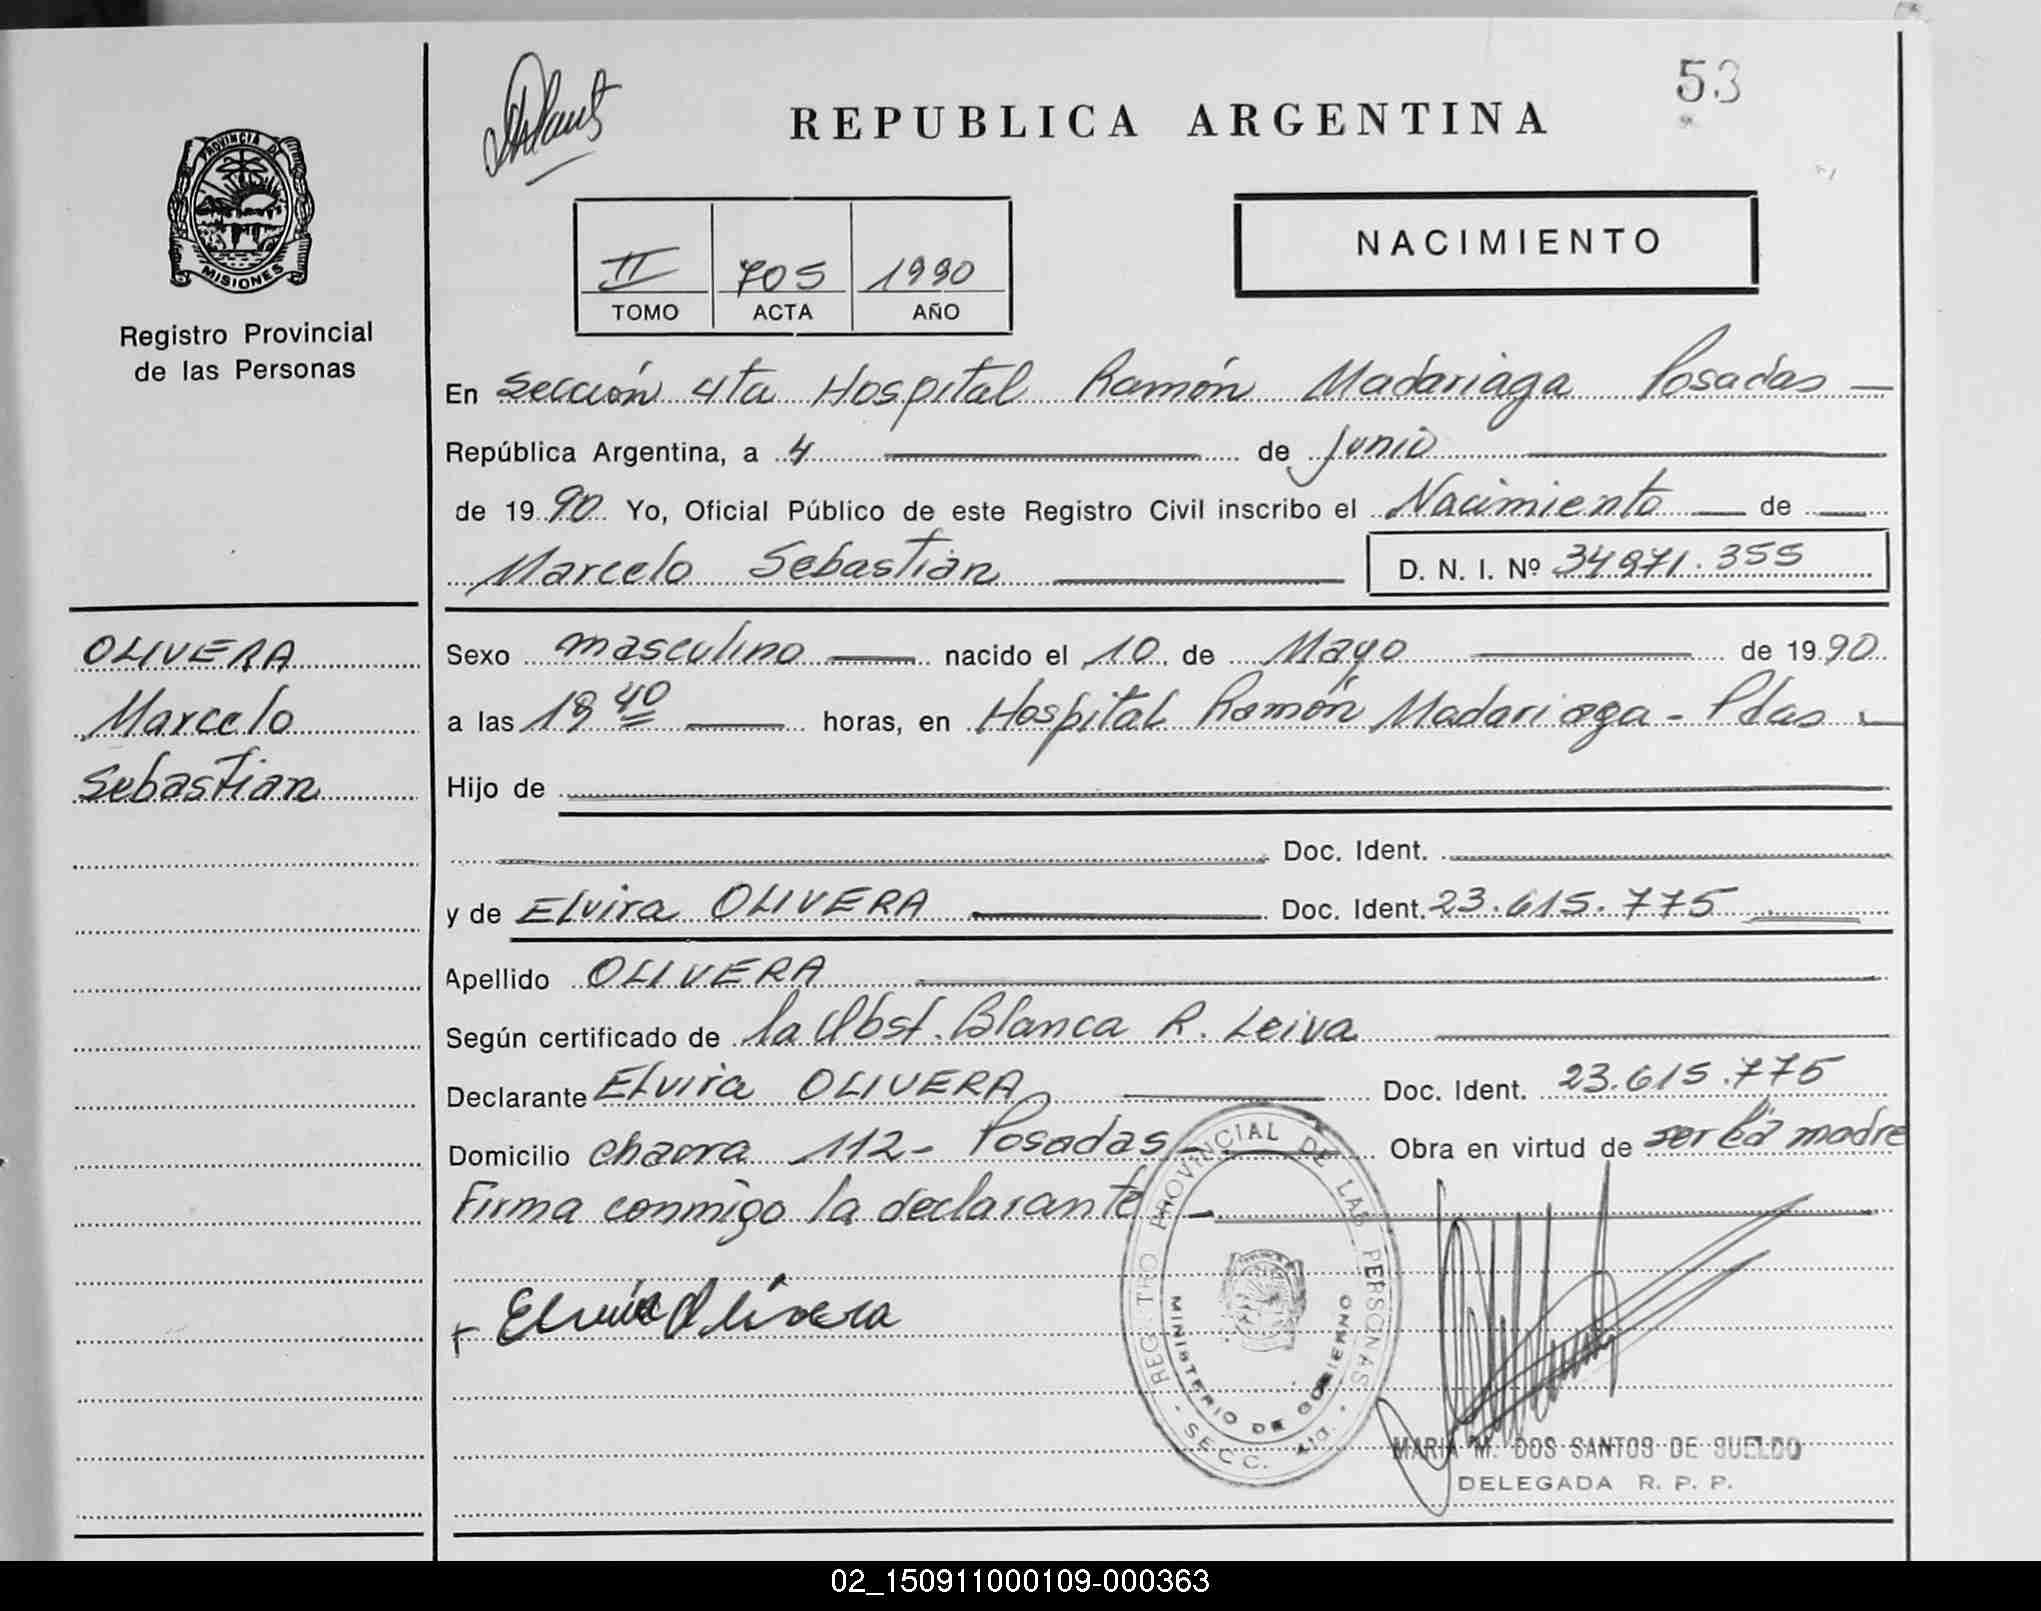 53
REPUBLICA ARGENTINA
PROVINCIA DE
MISIONES
Registro Provincial
de las Personas
NACIMIENTO
II 705 1990
TOMO ACTA AÑO
En Sección 4ta Hospital Ramón Madariaga Posadas
República Argentina, a 4 de Junio
de 1990 Yo, Oficial Público de este Registro Civil inscribo el Nacimiento de
Marcelo Sebastián D. N. I. Nº 34.971.355
OLIVERA
Marcelo
Sebastian
Sexo masculino nacido el 10 de Mayo de 1990
a las 18 40 horas, en Hospital Ramón Madariaga - Pdas
Hijo de
Doc. Ident.
y de Elvira OLIVERA Doc. Ident. 23.615.775
Apellido OLIVERA
Según certificado de la Obst. Blanca R. Leiva
Declarante Elvira OLIVERA Doc. Ident. 23.615.775
Domicilio chacra 112 - Posadas - Obra en virtud de ser la madre
Firma conmigo la declarante -
Elvira Olivera
REGISTRO PROVINCIAL DE LAS PERSONAS
MINISTERIO DE GOBIERNO
- SECC. 4ta. -
MARIA M. DOS SANTOS DE SUELDO
DELEGADA R. P. P.
02_150911000109-000363